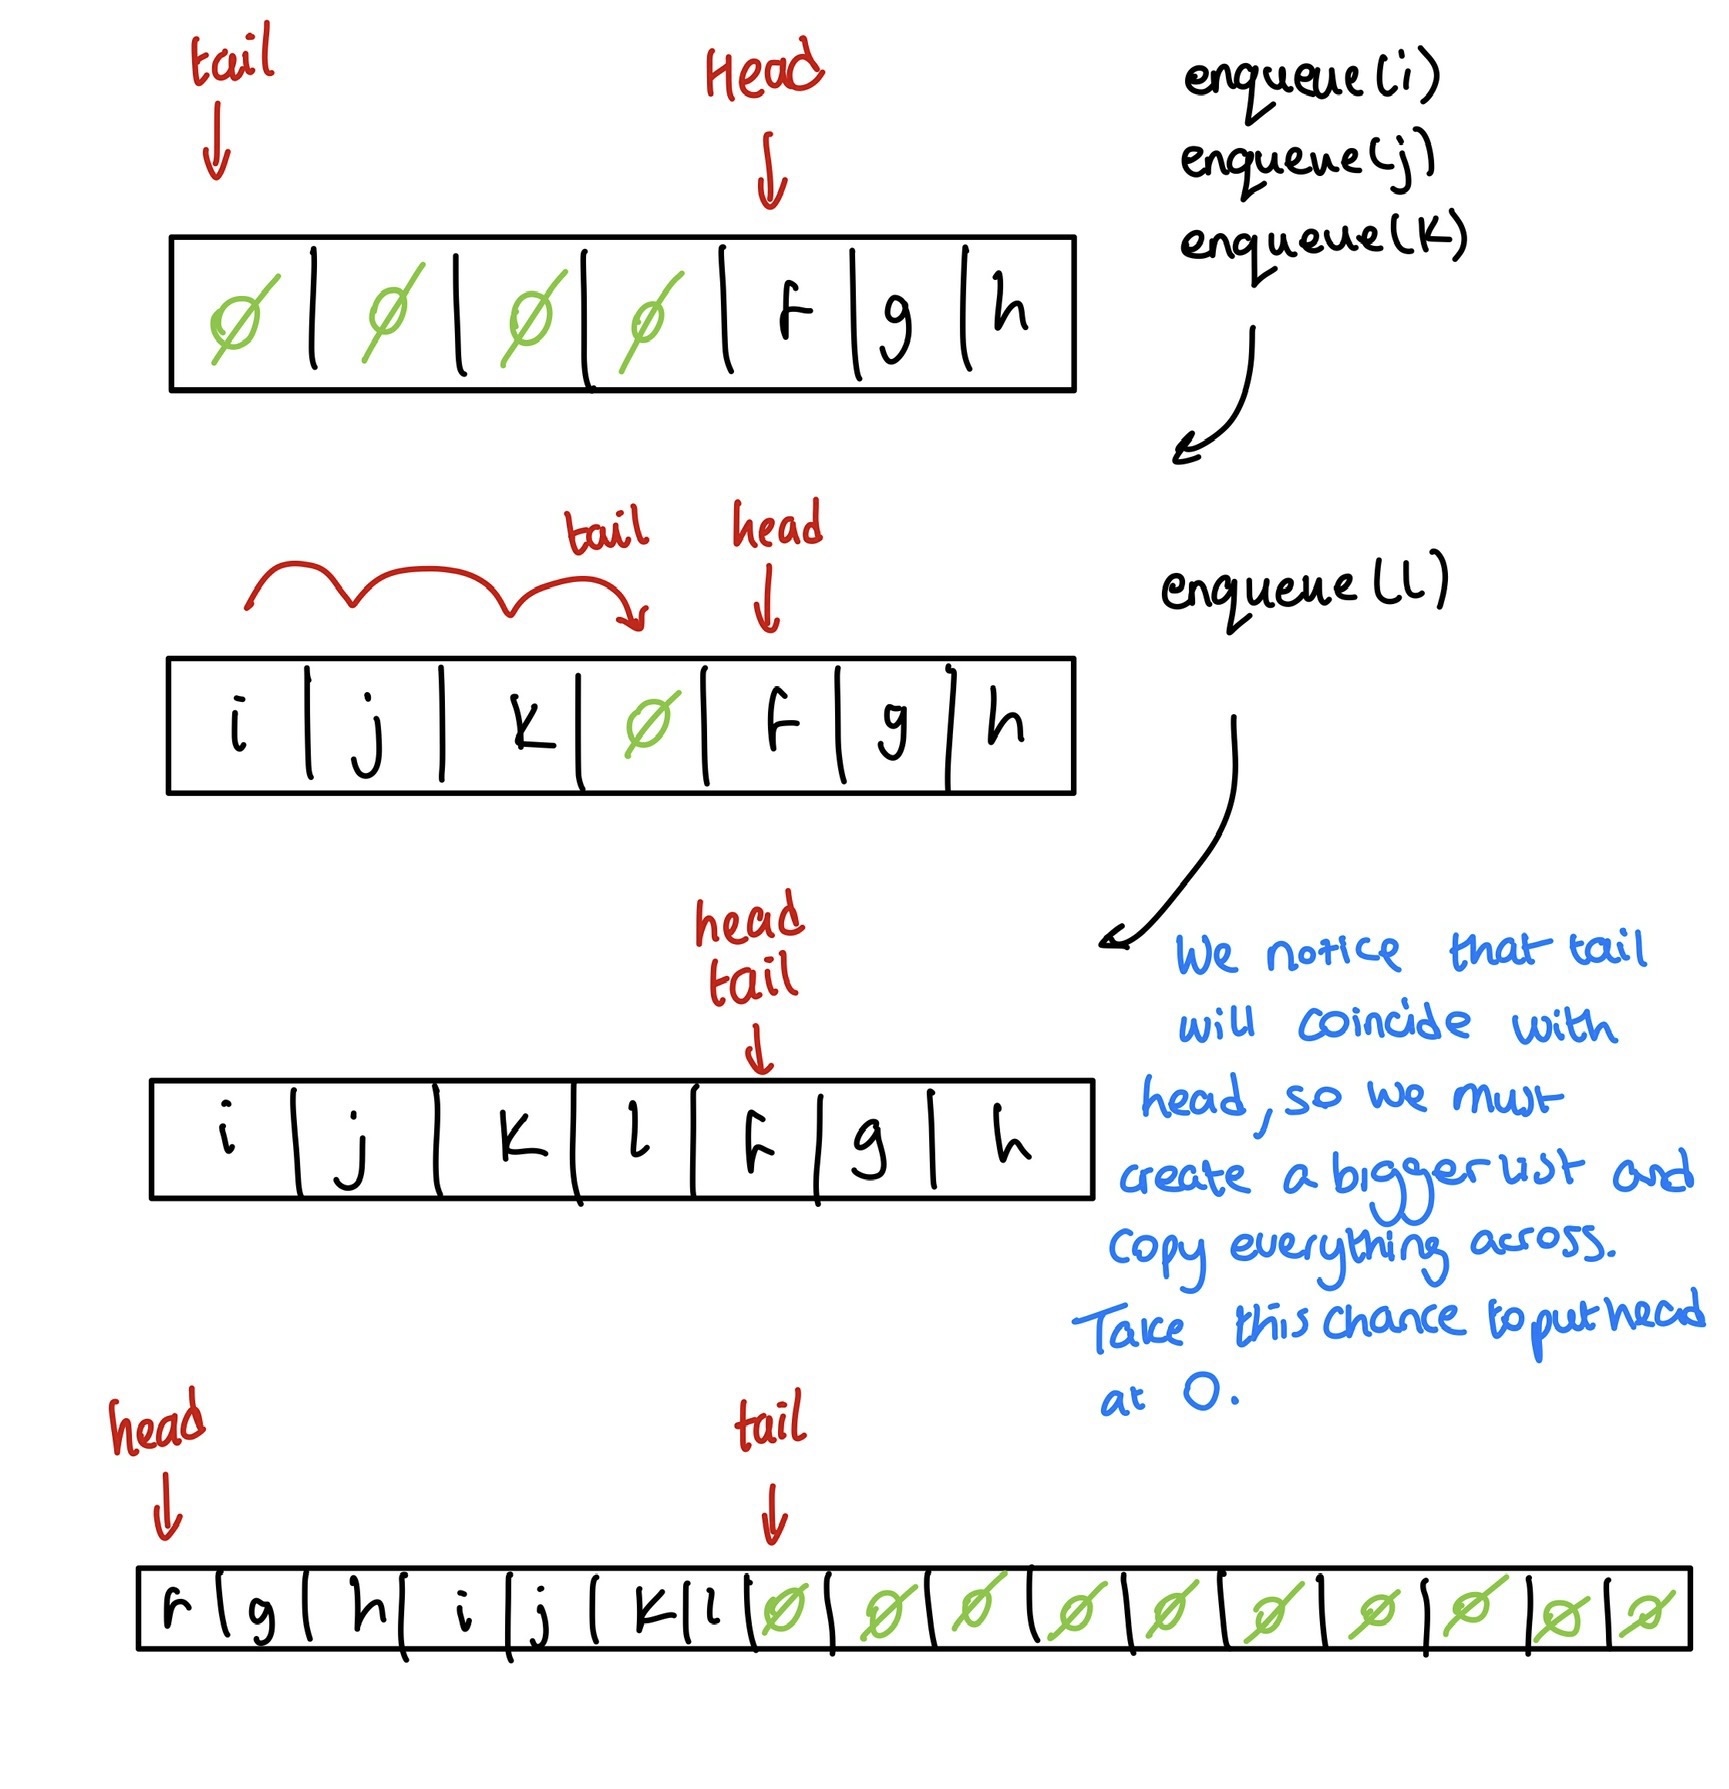 tail Head
enqueue(i)
enqueue(j)
enqueue(k)
∅ ∅ ∅ ∅ f g h
tail head
enqueue(l)
i j k ∅ f g h
head
tail
We notice that tail
will coincide with
head, so we must
create a bigger list and
copy everything across.
Take this chance to put head
at 0.
i j k l f g h
head tail
f g h i j k l ∅ ∅ ∅ ∅ ∅ ∅ ∅ ∅ ∅ ∅